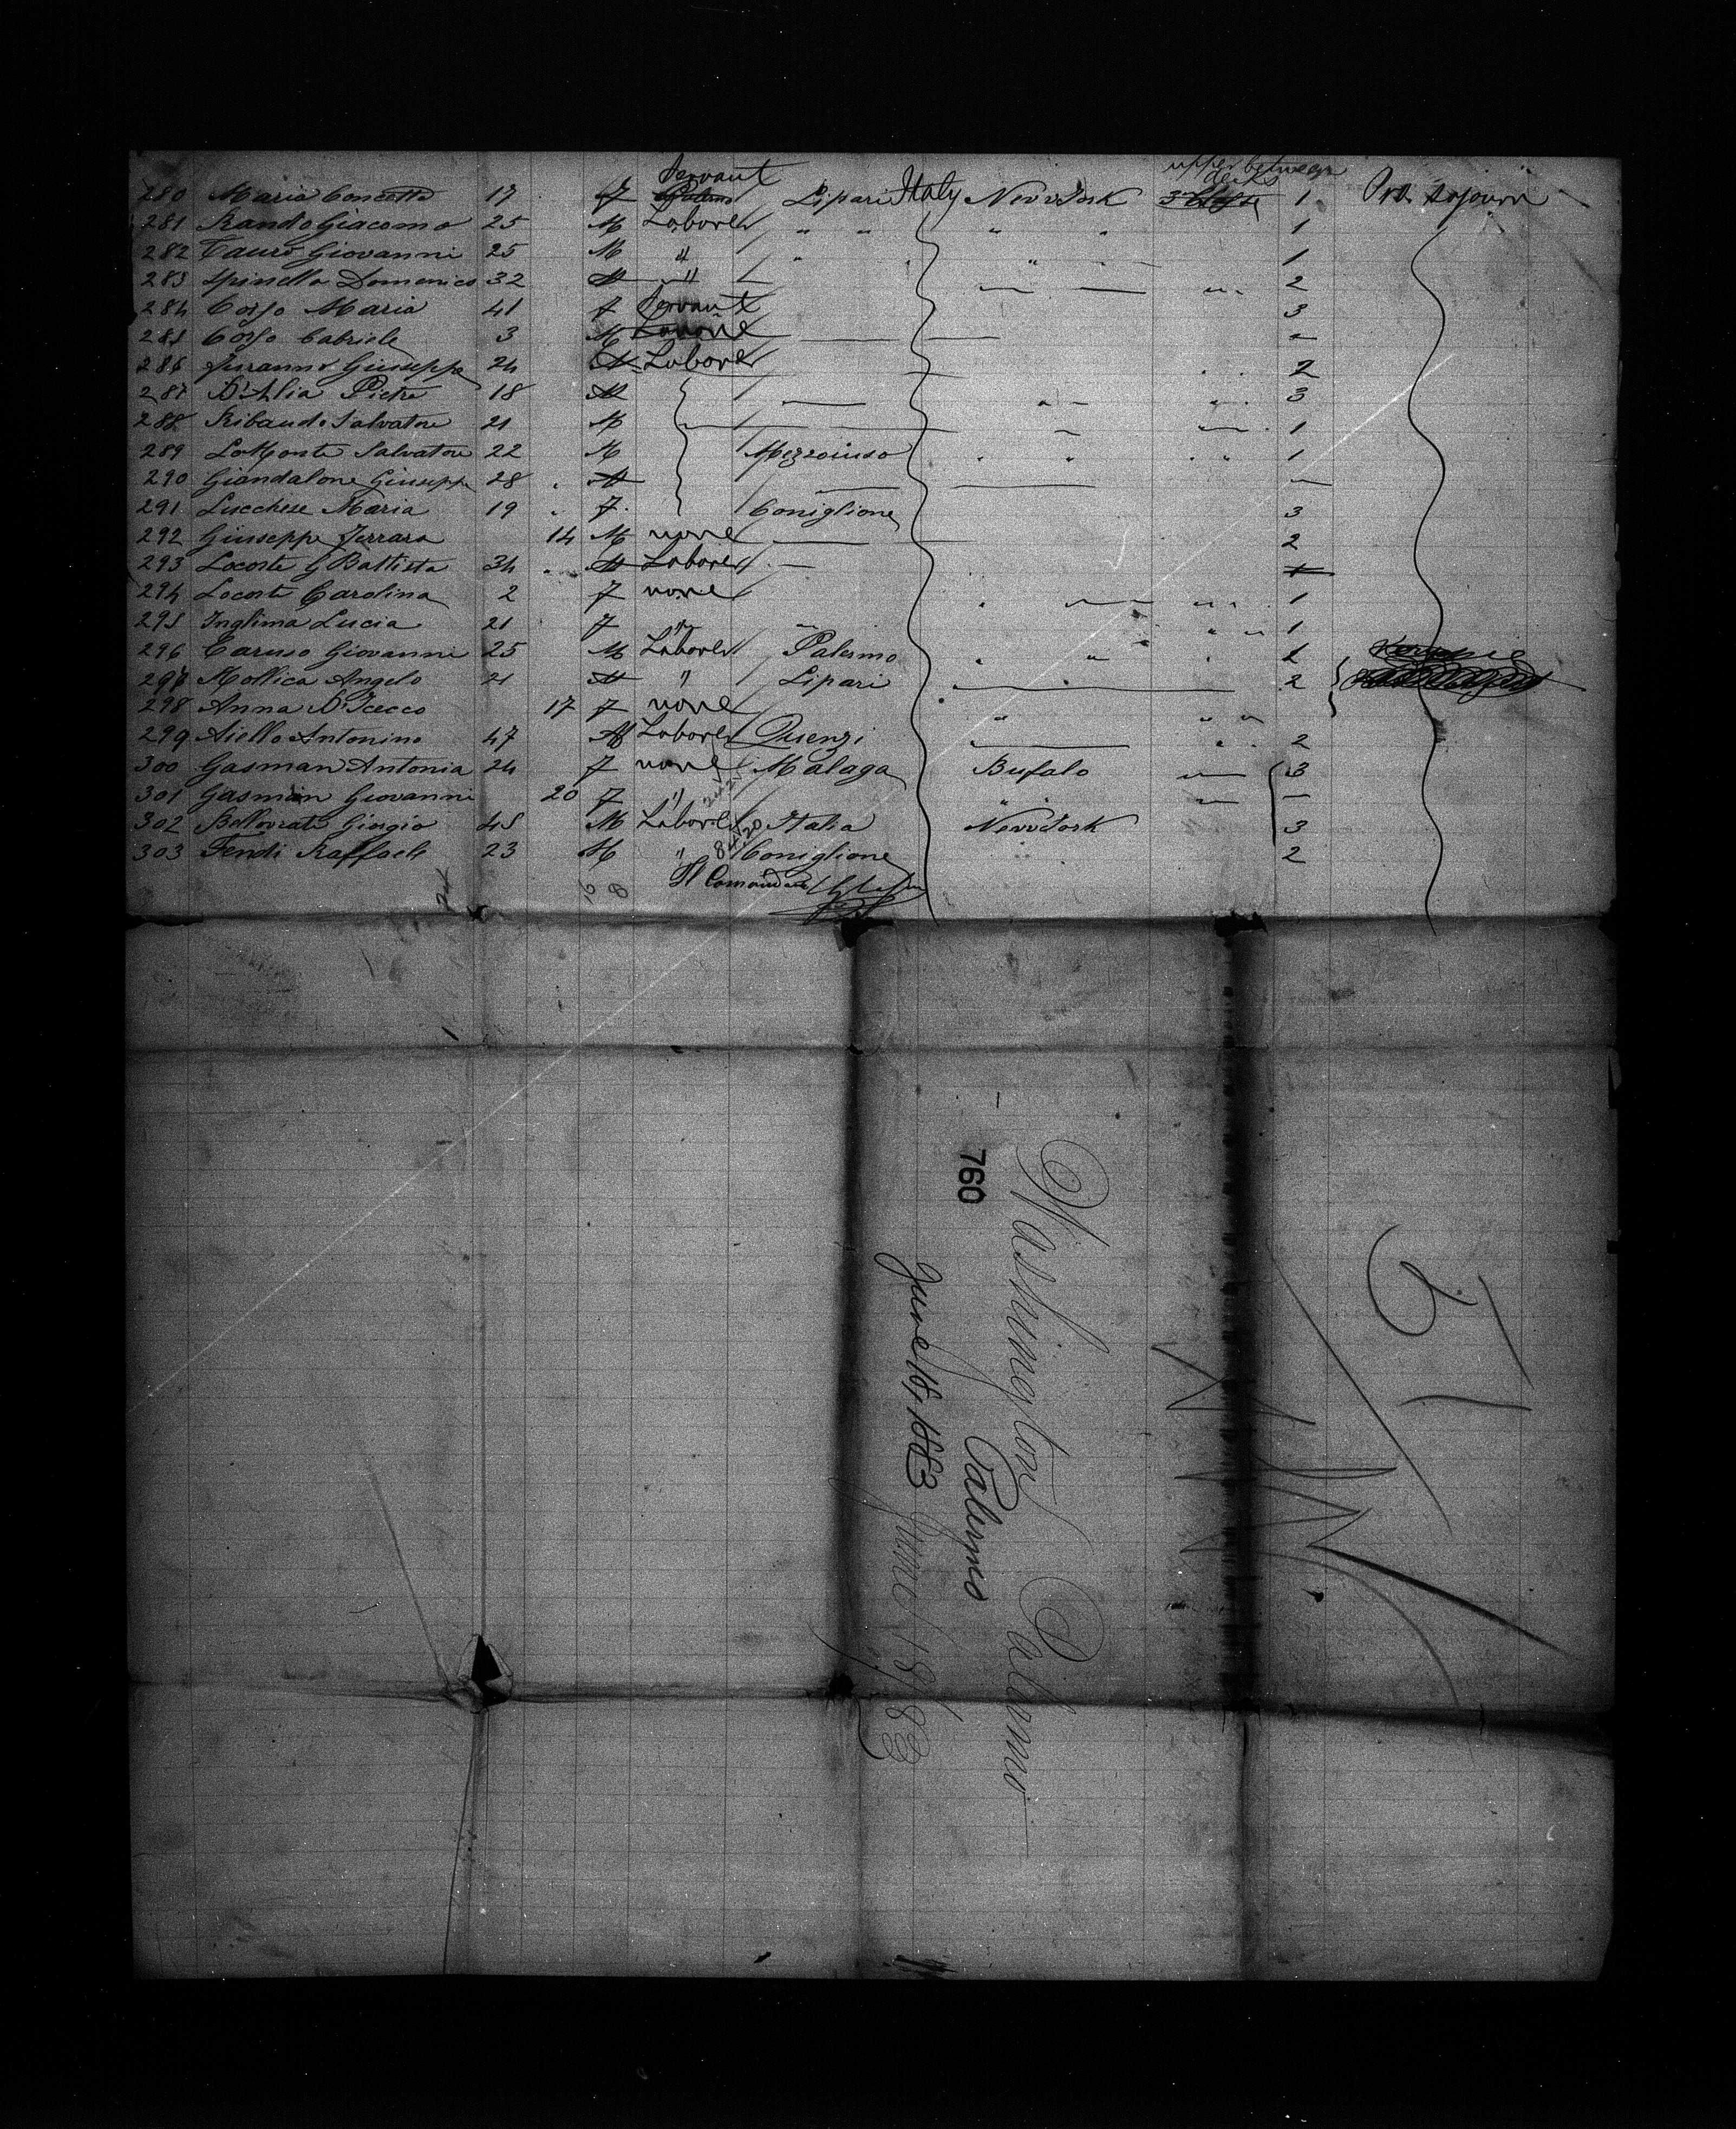 Servant upper between decks
280 Maria Concetta 17 F Lipari Italy New York 1 Pro. sojourn
281 Randо Giacomo 25 M Laborer " " " " 1
282 Tauro Giovanni 25 M " " " 1
283 Spinella Domenico 32 M " 2
284 Corso Maria 41 F Servant 3
285 Corso Gabriele 3 M none
286 Giuseppe 24 M Laborer 2
287 D'Alia Pietro 18 M 3
288 Ribaudo Salvatore 21 M 1
289 LoMonte Salvatore 22 M Mezzoiuso 1
290 Giandalone Giuseppe 28 M
291 Lucchese Maria 19 F Coniglione 3
292 Giuseppe Ferrara 14 M none 2
293 Locoste G Battista 34 M Laborer 1
294 Locoste Carolina 2 F none 1
295 Inglima Lucia 21 F " 1
296 Caruso Giovanni 25 M Laborer Palermo 1
297 Mollica Angelo 21 M " Lipari 2
298 Anna D'Icecco 17 F none
299 Aiello Antonino 47 M Laborer 2
300 Gasman Antonia 24 F none Malaga Bufalo 3
301 Gasman Giovanni 20 F "
302 Giorgio 45 M Laborer Italia New York 3
303 Fendi Raffaele 23 M " Coniglione 2
Il Comandante
Washington Palermo
760
Palermo
June 18, 1883
June 1883
51